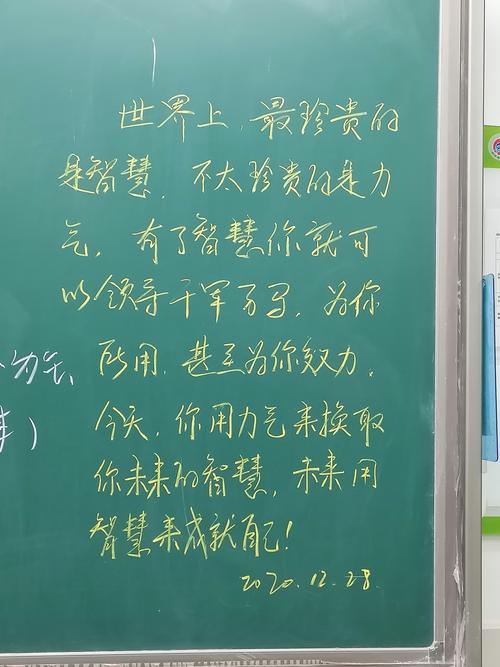 世界上,最珍贵的
是智慧,不太珍贵的是力
气,有了智慧你就可
以领导千军万马,为你
所用,甚至为你效力。
今天,你用力气来换取
你未来的智慧,未来用
智慧来成就自己!
2020.12.28.